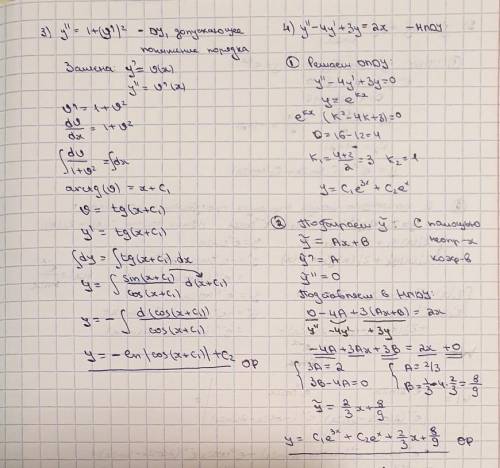 3) y'' = 1+(y')² – ДУ, допускающее
понижение порядка
Замена: y' = v(x)
y'' = v'(x)
v' = 1+v²
dv/dx = 1+v²
∫ dv/(1+v²) = ∫dx
arctg(v) = x+C₁
v = tg(x+C₁)
y' = tg(x+C₁)
∫dy = ∫tg(x+C₁)·dx
y = ∫ sin(x+C₁)/cos(x+C₁) d(x+C₁)
y = -∫ d(cos(x+C₁))/cos(x+C₁)
y = -ln|cos(x+C₁)|+C₂ ОР
4) y''-4y'+3y=2x – НЛДУ
① Решаем ОЛДУ:
y''-4y'+3y=0
y=e^{kx}
e^{kx}(k²-4k+3)=0
D=16-12=4
k₁=(4+2)/2=3 k₂=1
y=C₁e^{3x}+C₂e^{x}
② Подбираем ỹ: С помощью
ỹ = Ax+B неопр-х
ỹ' = A коэф-в
ỹ'' = 0
Подставляем в НЛДУ:
0-4A+3(Ax+B)=2x
y'' -4y' +3y
-4A+3Ax+3B=2x+0
{3A=2 {A=2/3
3B-4A=0 B=1/3·4·2/3=8/9
ỹ=2/3x+8/9
y=C₁e^{3x}+C₂e^{x}+2/3x+8/9 ОР